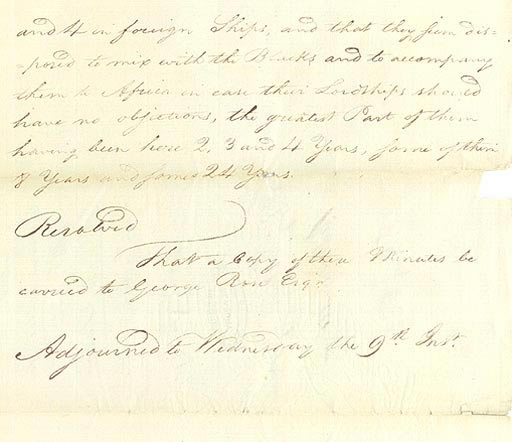 and 4 in foreign Ships, and that they seem dis=
=posed to mix with the Blacks and to accompany
them to Africa in case their Lordships should
have no objections, the greatest Part of them
having been here 2, 3 and 4 Years, some of them
8 Years and some 24 Years.
Resolved
That a Copy of these Minutes be
carried to George Rose Esqr.
Adjourned to Wednesday the 9th Inst.